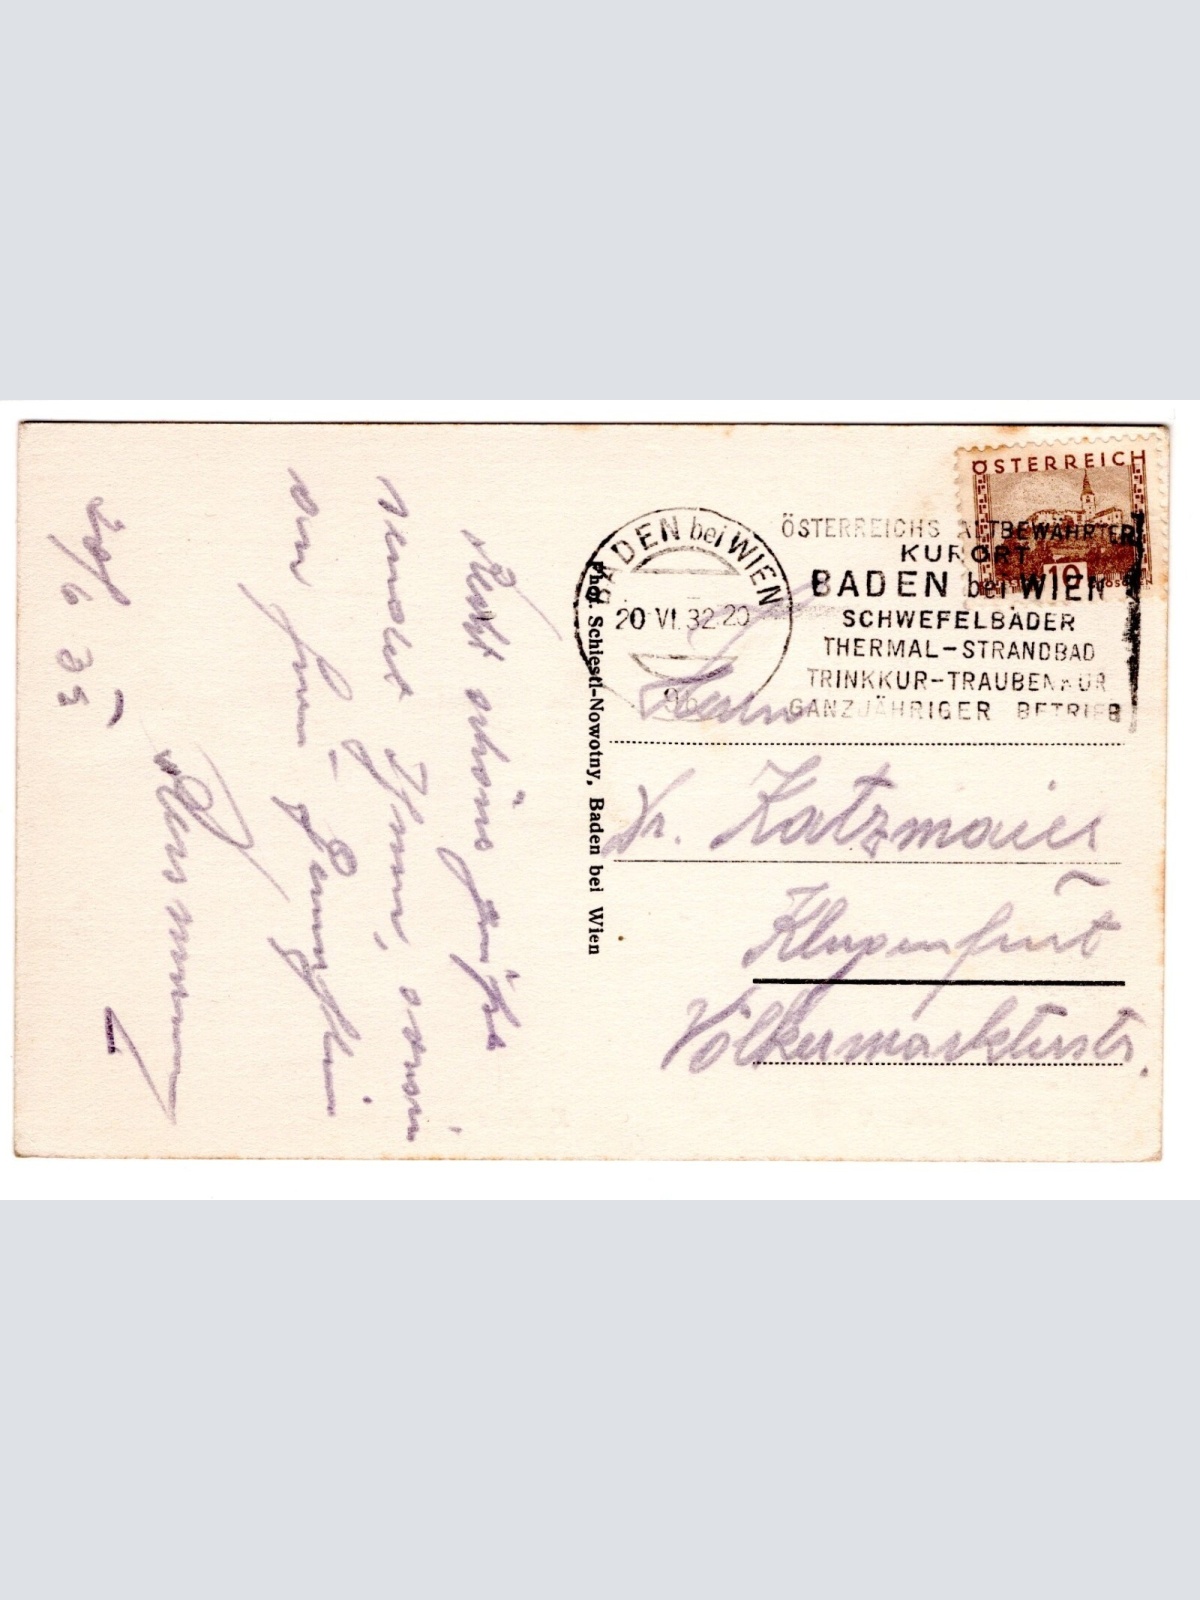 Recht schöne Grüße
sendet Ihnen, sowie
20/6 32
Phot. Schiestl-Nowotny, Baden bei Wien
BADEN bei WIEN
20 VI. 32 20
9b
ÖSTERREICHS ALTBEWÄHRTER
KURORT
BADEN bei WIEN
SCHWEFELBÄDER
THERMAL-STRANDBAD
TRINKKUR-TRAUBENKUR
GANZJÄHRIGER BETRIEB
ÖSTERREICH
10
Herrn
Dr. Katzmaier
Klagenfurt
Völkermarkterstr.